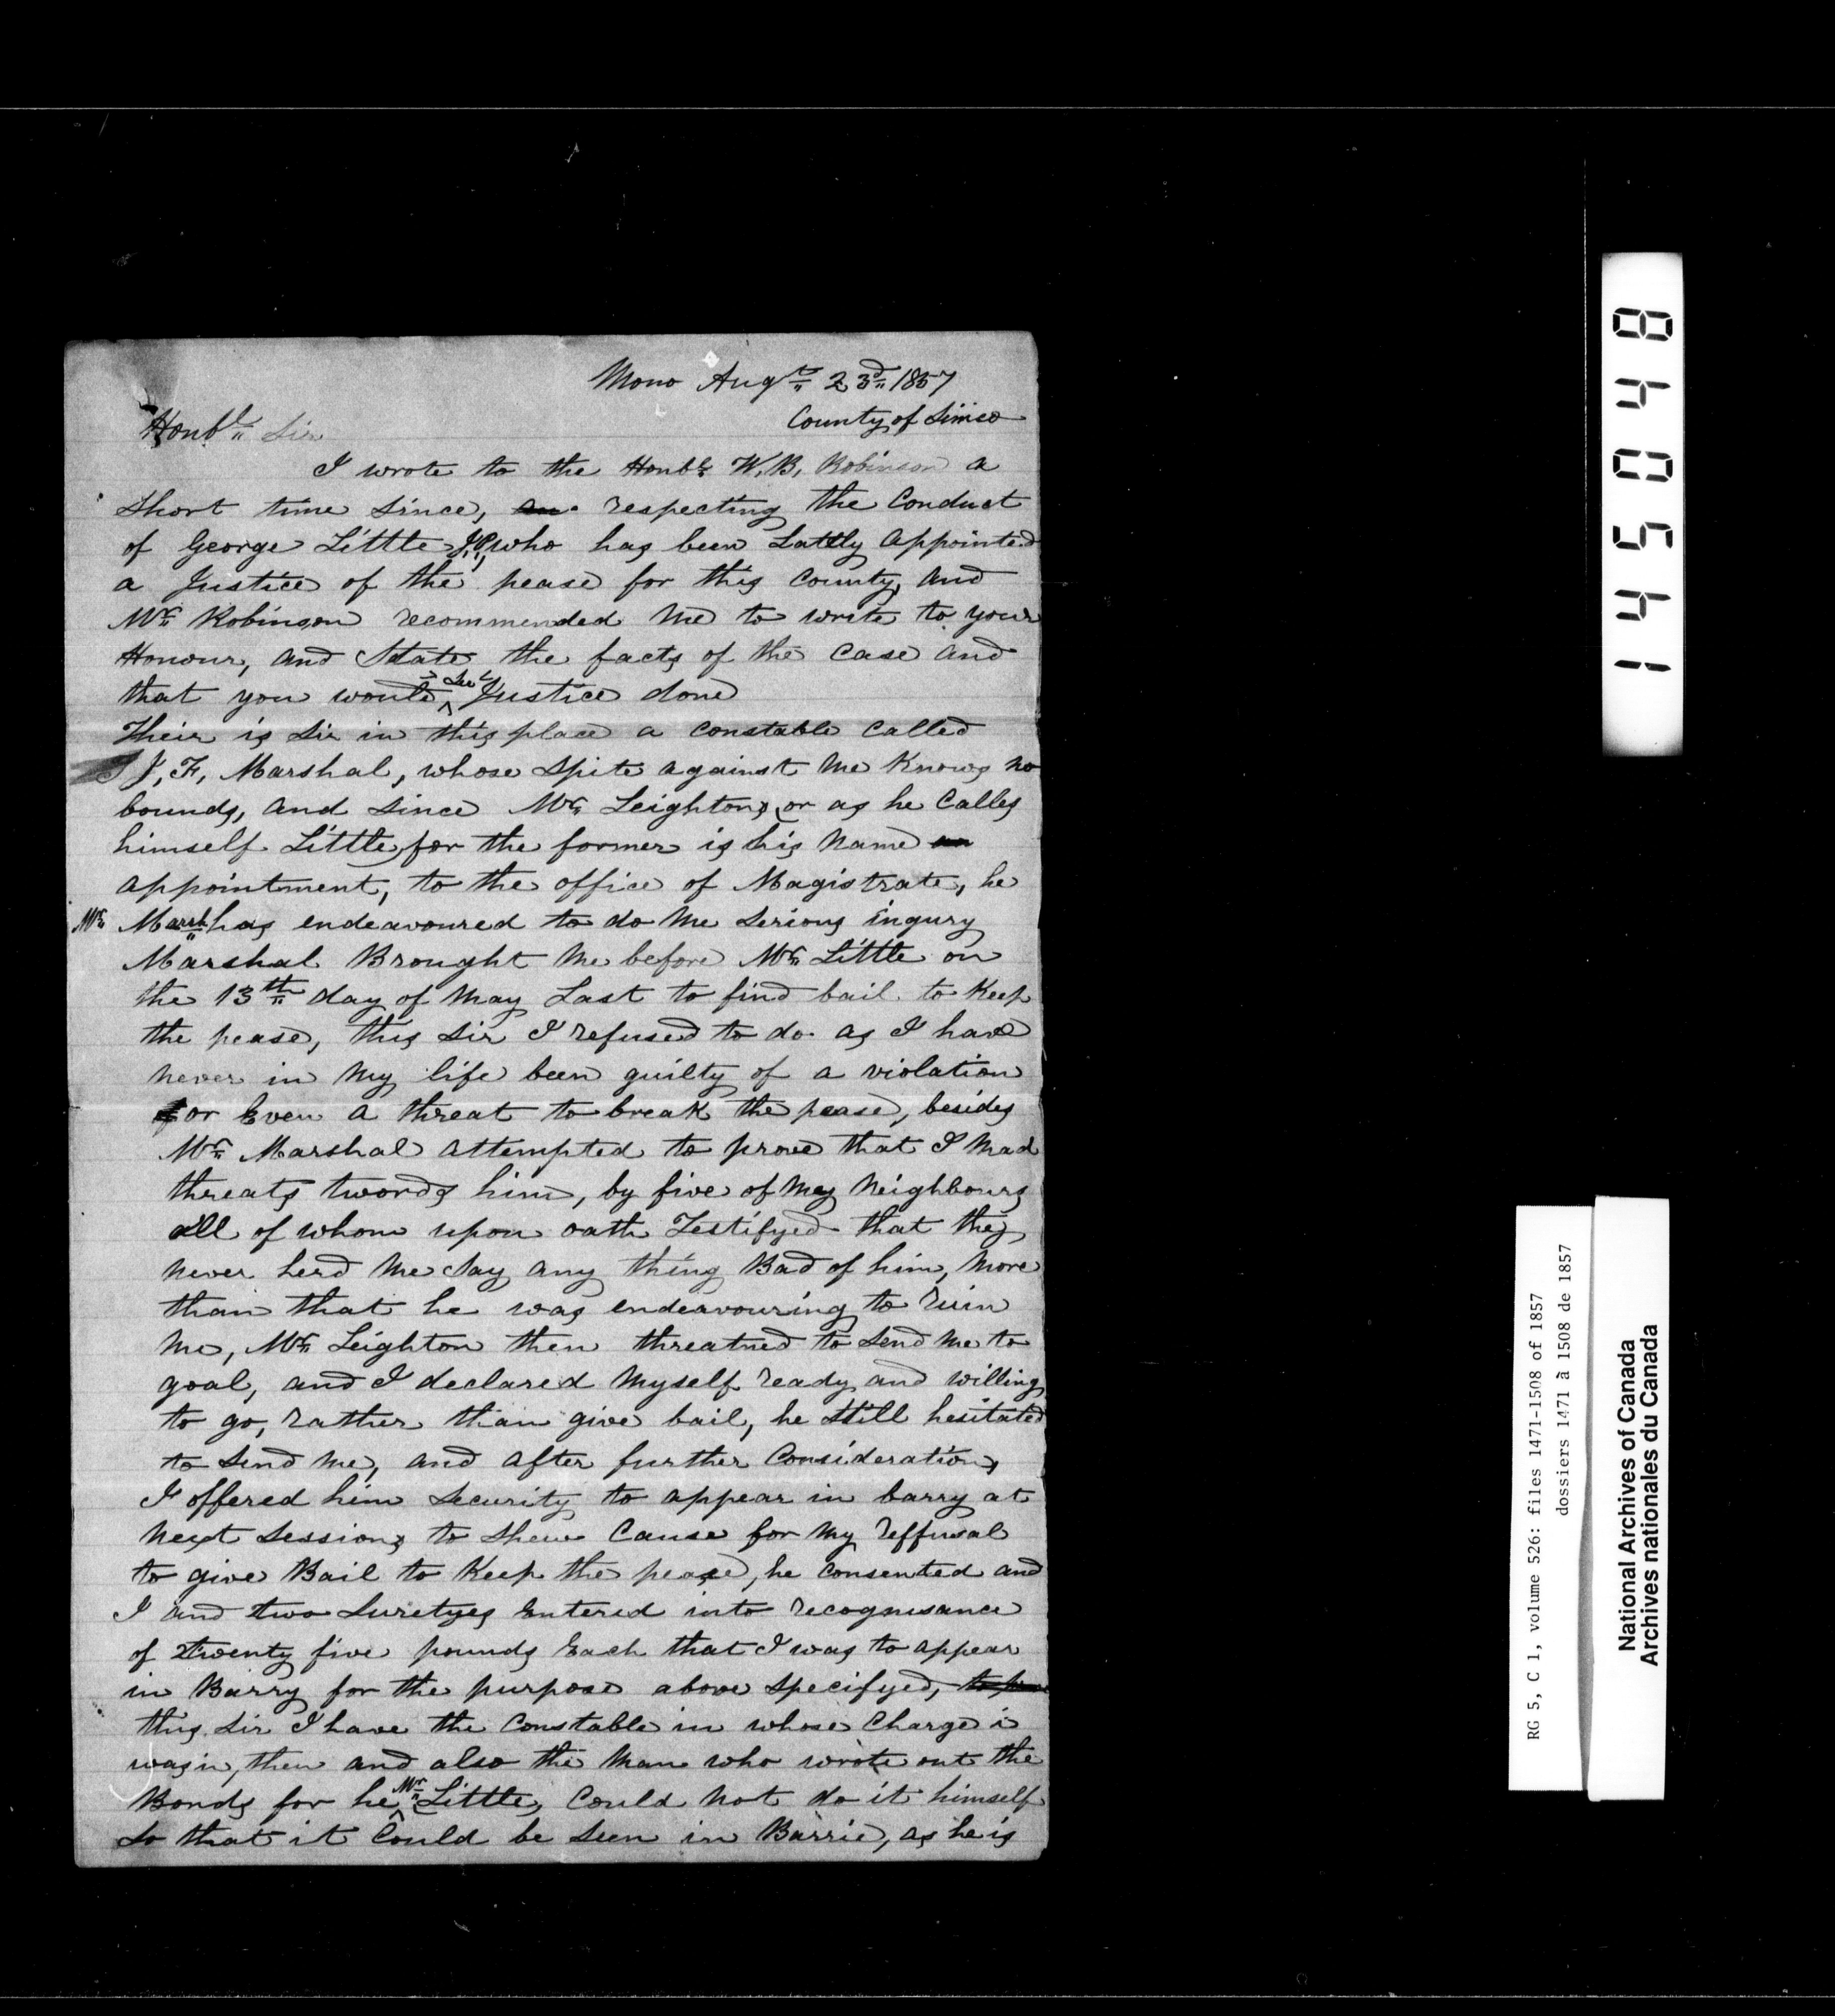 Mono Augt 23d 1857
County of Simco
Honbl Sir
I wrote to the Honble W, B, Robinson a
short time since, respecting the Conduct
of George Little J,P, who has been Lattly appointed
a Justice of the pease for this County, and
Mr Robinson recommended me to write to your
Honour, and State the facts of the Case and
that you would see Justice done
Their is Sir in this place a constable called
J, F, Marshal, whose spite against me Knows no
bounds, and since Mr Leightons, (or as he Calles
himself Little, for the former is his name
appointment, to the office of Magistrate, he
Mr Marsh has endeavoured to do me serious ingury
Marshal Brought me before Mr Little on
the 13th day of May Last to find bail to Keep
the pease, this Sir I refused to do as I have
never in my life been guilty of a violation
or Even a threat to break the pease, besides
Mr Marshal attempted to prove that I mad
threats twords him, by five of my Neighbours
all of whom upon oath Testifyed that they
never herd me say any thing Bad of him, more
than that he was endeavouring to ruin
me, Mr Leighton then threatned to send me to
goal, and I declared myself ready and willing
to go, rather than give bail, he still hesitated
to send me, and after further Consideration,
I offered him security to appear in barry at
next sessions to shew Cause for my reffusal
to give Bail to Keep the pease, he consented and
I and two suretyes Entered into recognisance
of twenty five pounds Each that I was to appear
in Barry for the purpose above specifyed,
this Sir I have the Constable in whose Charge i
was in, then and also the man who wrote out the
Bonds for he Mr Little, Could not do it himself
so that it Could be seen in Barrie, as he is
145048
RG 5, C 1, volume 526: files 1471-1508 of 1857
dossiers 1471 à 1508 de 1857
National Archives of Canada
Archives nationales du Canada